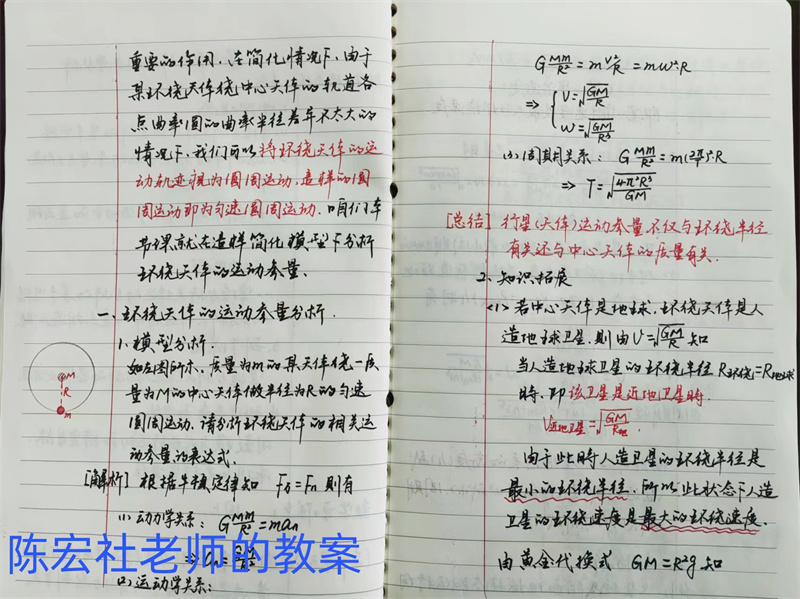 重要的作用. 在简化情况下, 由于
某环绕天体绕中心天体的轨道各
点曲率圆的曲率半径差异不太大的
情况下, 我们可以将环绕天体的运
动轨迹视为圆周运动, 这样的圆
周运动即为匀速圆周运动. 咱们本
节课就在这样简化模型下分析
环绕天体的运动参量.
一、环绕天体的运动参量分析.
1. 模型分析.
如左图所示, 质量为m的某天体绕一质
量为M的中心天体做半径为R的匀速
圆周运动, 请分析环绕天体的相关运
动参量的表达式.
M
R
m
[解析] 根据牛顿定律知 F万=Fn 则有
(1) 动力学关系: G Mm/R² = man
⇒ an =
(2) 运动学关系:
陈宏社老师的教案
G Mm/R² = m v²/R = mω²R
⇒ { V=√(GM/R)
ω=√(GM/R³)
(3) 周期关系: G Mm/R² = m(2π/T)²R
⇒ T=√(4π²R³/GM)
[总结] 行星(天体)运动参量不仅与环绕半径
有关还与中心天体的质量有关.
2. 知识拓展
<1> 若中心天体是地球, 环绕天体是人
造地球卫星, 则由V=√(GM/R) 知
当人造地球卫星的环绕半径 R环绕=R地球
时, 即该卫星是近地卫星时.
V近地卫星=√(GM/R地).
由于此时人造卫星的环绕半径是
最小的环绕半径, 所以此状态下人造
卫星的环绕速度是最大的环绕速度.
由黄金代换式 GM=R²g 知